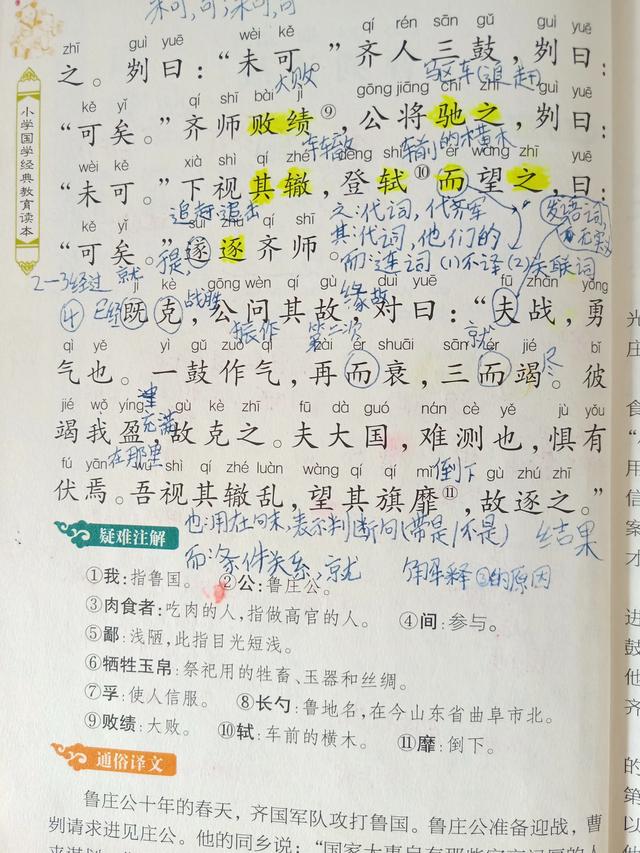 未可,可;未可,可
zhī guì yuē wèi kě qí rén sān gǔ guì yuē
之。刿曰：“未可。”齐人三鼓，刿曰：
大败 驱车(追赶)
kě yǐ qí shī bài jì gōng jiāng chí zhī guì yuē
“可矣。”齐师败绩⑨，公将驰之，刿曰：
车前的横木
wèi kě xià shì qí zhé dēng shì ér wàng zhī yuē
“未可。”下视其辙，登轼⑩而望之，曰：
追赶追击 之:代词,代齐军 发语词,
kě yǐ suì zhú qí shī
“可矣。”遂逐齐师。
其:代词,他们的
而:连词(1)不译(2)关联词
2-3经过 就
jì kè gōng wèn qí gù duì yuē fū zhàn yǒng
④ 已经 既克，公问其故，对曰：“夫战，勇
战胜 缘故
振作 第二次 就
qì yě yì gǔ zuò qì zài ér shuāi sān ér jié bǐ
气也。一鼓作气，再而衰，三而竭。彼
尽
jié wǒ yíng gù kè zhī fū dà guó nán cè yě jù yǒu
竭我盈，故克之。夫大国，难测也，惧有
充满
在那里 倒下
fú yān wú shì qí zhé luàn wàng qí qí mǐ gù zhú zhī
伏焉。吾视其辙乱，望其旗靡⑪，故逐之。”
也:用在句末,表示判断句(带是/不是) 结果
疑难注解
而:条件关系,就 解释③的原因
①我：指鲁国。 ②公：鲁庄公。
③肉食者：吃肉的人，指做高官的人。 ④间：参与。
⑤鄙：浅陋，此指目光短浅。
⑥牺牲玉帛：祭祀用的牲畜、玉器和丝绸。
⑦孚：使人信服。 ⑧长勺：鲁地名，在今山东省曲阜市北。
⑨败绩：大败。 ⑩轼：车前的横木。 ⑪靡：倒下。
通俗译文
鲁庄公十年的春天，齐国军队攻打鲁国。鲁庄公准备迎战，曹
刿请求进见庄公。他的同乡说：“国家大事自有那些
小学国学经典教育读本